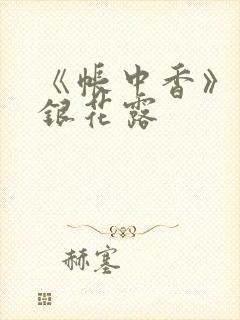 《帐中香》
银花露
赫塞